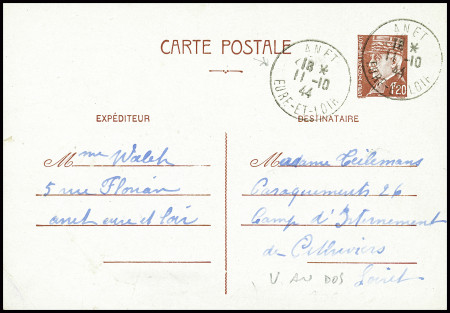 CARTE POSTALE
ANET
18 *
11 -10
44
EURE-ET-LOIR
ANET
18 *
11 -10
44
EURE-ET-LOIR
1F20
EXPÉDITEUR
Mme Walch
5 rue Florian
anet eure et Loir
DESTINATAIRE
Madame Ceilemans
Baraquements 26
Camp d'Internement
de Pithiviers
Loiret
V. AU DOS